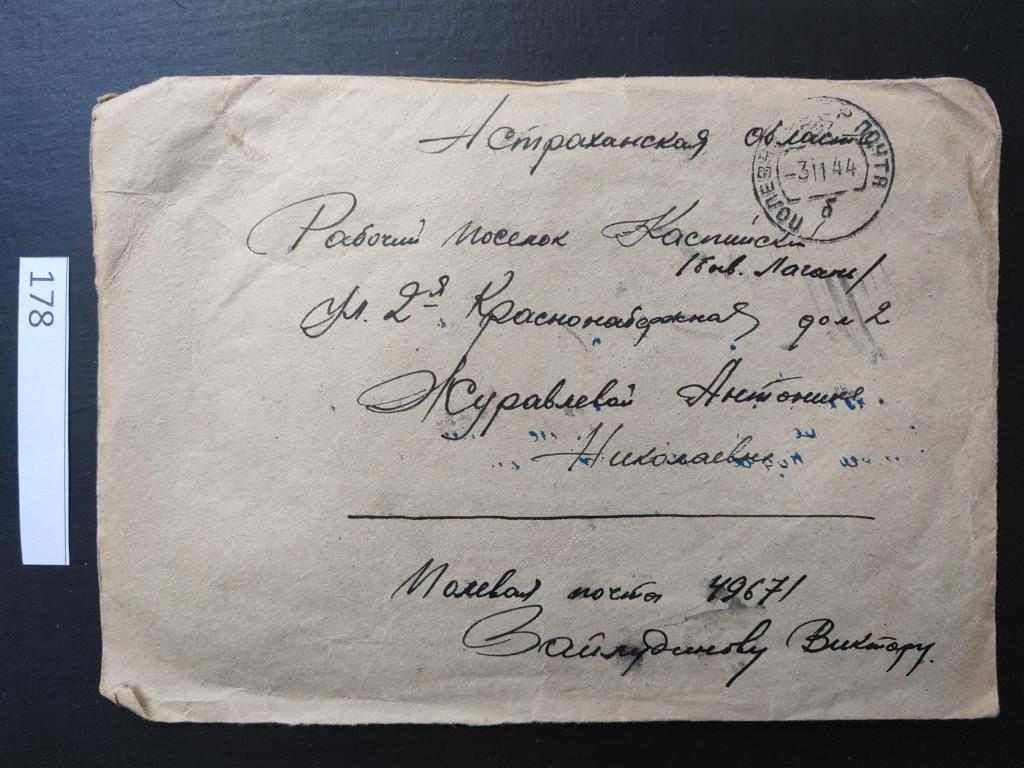 178
Астраханская область
ПОЛЕВАЯ ПОЧТА
-3 11 44
б
Рабочий поселок Каспийск
/быв. Лагань/
ул. 2-я Краснонабережная дом 2
Журавлевой Антонине
Николаевне
Полевая почта 49671
Зайлудинову Виктору.